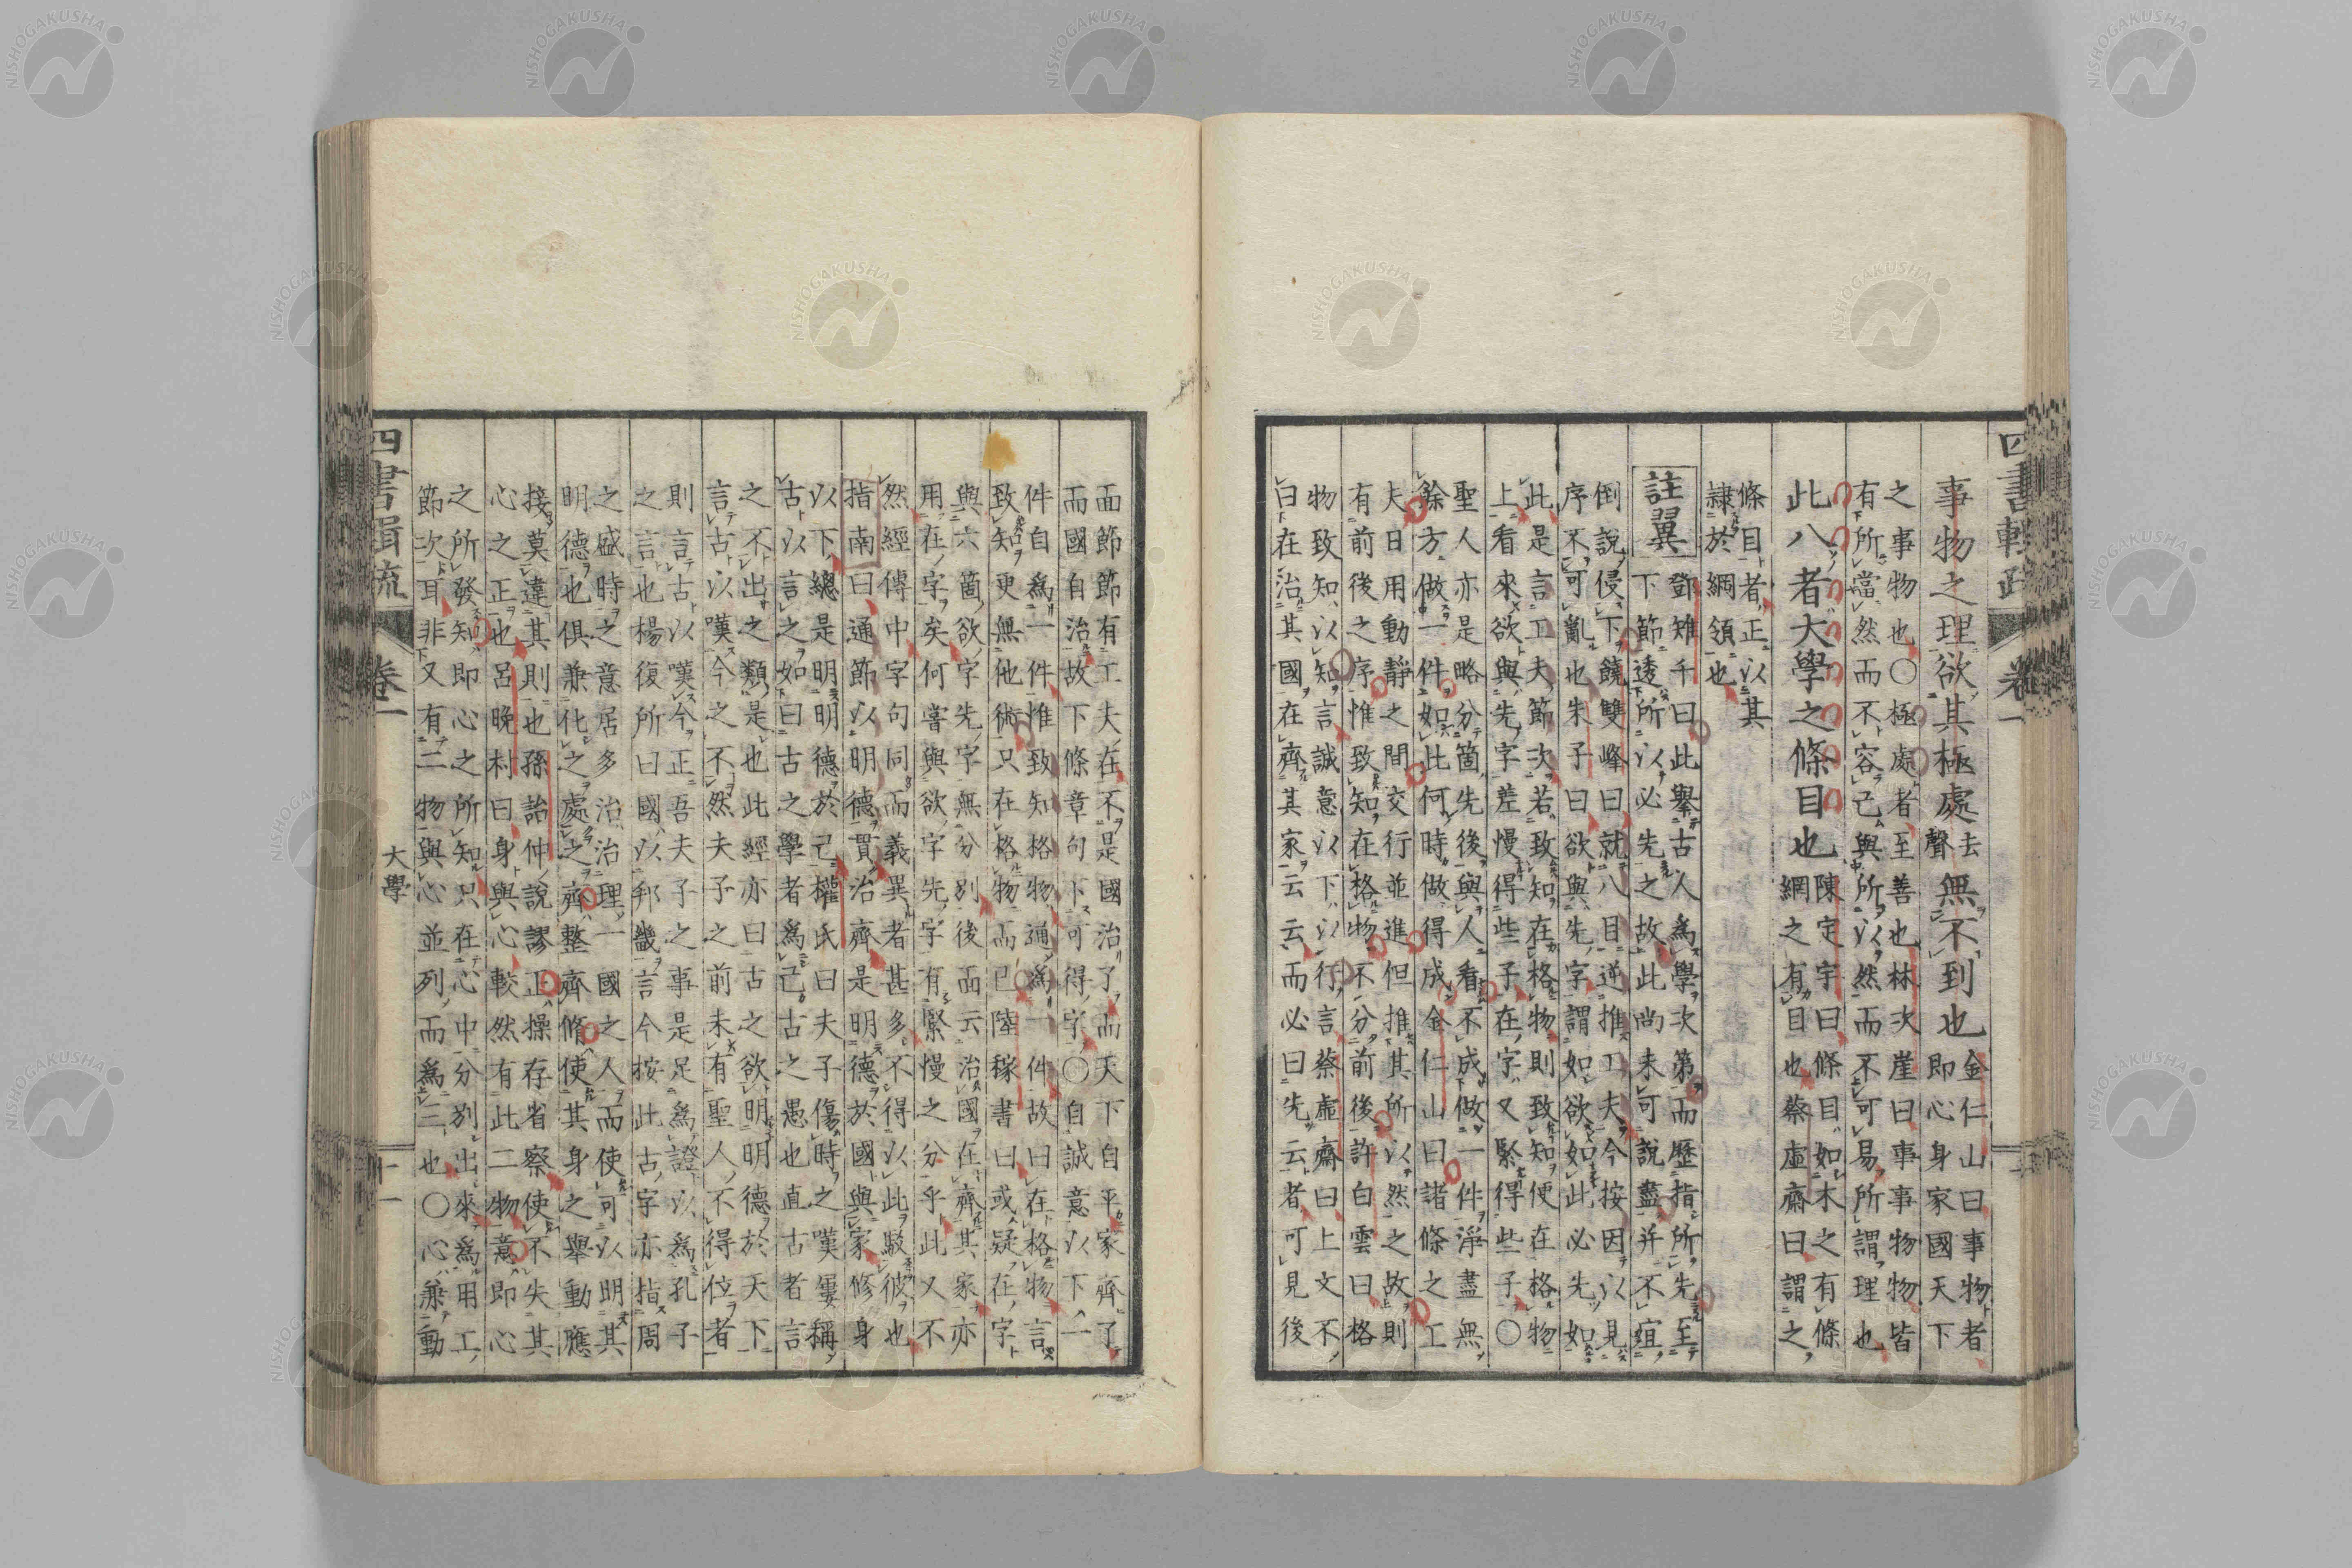 事物之理欲其極處去聲無不到也金仁山曰事物者
即心身家國天下
之事物也〇極處者至善也林次崖曰事事物物皆
有所當然而不容已與所以然而不可易所謂理也
此八者大學之條目也陳定宇曰條目如木之有條
綱之有目也蔡虛齋曰謂之
條目者正以其
隷於綱領也
註翼
鄧雉千曰此舉古人為學次第而歷指所先至
下節透所以必先之故此尚未可說盡并不𡨴
倒說侵下饒雙峰曰就八目逆推工夫今按因以見
序不可亂也朱子曰欲與先字謂如欲如此必先如
此是言工夫節次若致知在格物則致知便在格物
上看來欲與先字差慢得些子在字又緊得些子〇
聖人亦是略分箇先後與人看不成做一件淨盡無
餘方做一件如此何時做得成金仁山曰諸條之工
夫日用動靜之間交行並進但推其所以然之故則
有前後之序惟致知在格物不分前後許白雲曰格
物致知以知言誠意以下以行言蔡虛齋曰上文不
曰在治其國在齊其家云云而必曰先云者可見後
面節節有工夫在不是國治了而天下自平家齊了
而國自治故下條章句下可得字〇自誠意以下一
件自為一件惟致知格物通為一件故曰在格物言
致知更無他術只在格物而已陸稼書曰或疑在字
與六箇欲字先字無分別後面云治國在齊其家亦
用在字矣何甞與欲字先字有緊慢之分乎此又不
然經傳中字句同而義異者甚多不得以此駁彼也
指南曰通節以明德貫治齊是明德於國與家修身
以下總是明明德於己權氏曰夫子傷時之嘆屢稱
古以言之如曰古之學者為己古之愚也直古者言
之不出之類是也此經亦曰古之欲明明德於天下
言古以嘆今之不然夫子之前未有聖人不得位者
則言古以嘆今正吾夫子之事是足為證以為孔子
之言也楊復所曰國以邦畿言今按此古字亦指周
之盛時之意居多治治理一國之人而使可以明其
明德也俱兼化之處之齊整齊脩使其身之舉動應
接莫違其則也孫詒仲說謬正操存省察使不失其
心之正也呂晚村曰身與心較然有此二物意即心
之所發知即心之所知只在心中分別出來為用工
節次耳非又有二物與心並列而為三也〇心兼動
四書輯疏
卷一
大學
十一